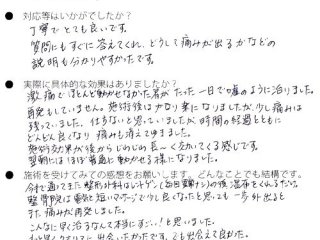 対応等はいかがでしたか？
丁寧でとても良いです。
質問にもすぐに答えてくれ、どうして痛みが出るかなどの
説明も分かりやすかったです。
実際に具体的な効果はありましたか？
激痛でほとんど動かせなかった首がたった一日で嘘のように治りました。
再発もしていません。施術後はかなり楽になりましたが少し痛みは
残っていました。仕方ないと思っていましたが時間の経過とともに
どんどん良くなり痛みも消えてきました。
施術効果が後からじわじわ長〜く効いてくる感じです。
翌朝にはほぼ普通に動かせる様になりました。
施術を受けてみての感想をお願いします。どんなことでも結構です。
今まで通ってきた整形外科はレントゲン(毎回異常ナシ)の後、湿布をくれるだけ。
整骨院は電気と短いマッサージで少し良くなったと思っても一歩外出ると
また痛みが再発しました。
こんなに早く治るなんて本当にすごい！と思いました。
もっと早くカイロに出会いたかったです。でも出会えて良かった。